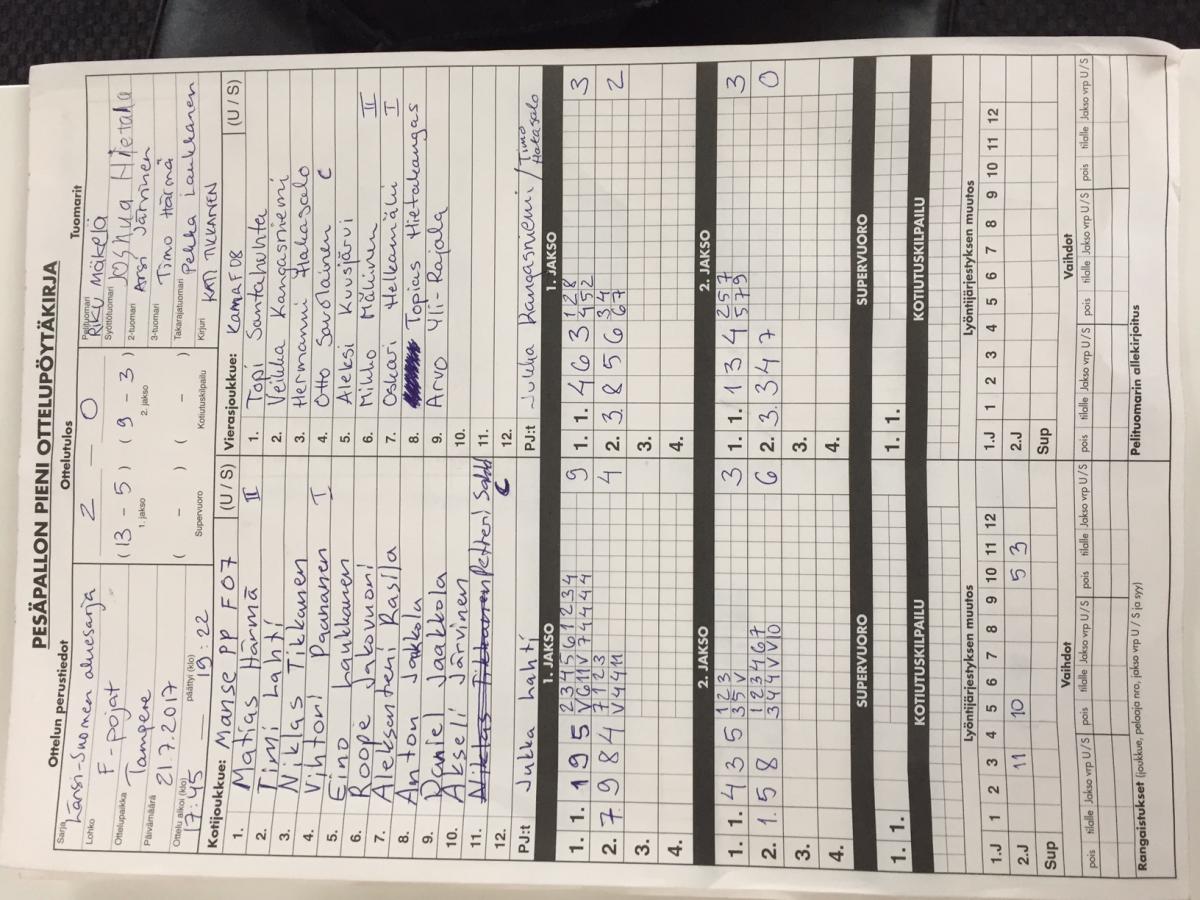 PESÄPALLON PIENI OTTELUPÖYTÄKIRJA
Ottelun perustiedot
Sarja
Länsi-Suomen aluesarja
Lohko
F-pojat
Ottelupaikka
Tampere
Päivämäärä
21.7.2017
Ottelu alkoi (klo) päättyi (klo)
17:45 19:22
Ottelutulos
2 — 0
(13 - 5) (9 - 3)
1. jakso 2. jakso
( - ) ( - )
Supervuoro Kotiutuskilpailu
Tuomarit
Pelituomari
Riku Mäkelä
Syöttötuomari
Joshua Hietala
2-tuomari
Arsi Järvinen
3-tuomari
Timo Härmä
Takarajatuomari
Pekka Laukkanen
Kirjuri
KATI TIKKANEN
Kotijoukkue: Manse PP F07 (U / S)
1. Matias Härmä II
2. Timi Lahti
3. Niklas Tikkanen
4. Vihtori Paananen I
5. Eino Laukkanen
6. Roope Jakovuori
7. Aleksanteri Rasila
8. Anton Jakkola
9. Daniel Jaakkola
10. Akseli Järvinen
11. Niklas Tikkanen Petteri
12. C
PJ:t Jukka Lahti
Vierasjoukkue: KAMA F08 (U / S)
1. Topi Santahuhta
2. Veikka Kangasniemi
3. Hermanni Hakasalo
4. Otto Savolainen C
5. Aleksi Kuusjärvi
6. Mikko Mälinen II
7. Oskari Helkamäki I
8. Topias Hietakangas
9. Arvo Yli-Rajala
10.
11.
12.
PJ:t Jukka Kangasniemi / Timo Hakasalo
1. JAKSO 1. JAKSO
1. 1. 1 9 5 2 3 4 5 6 1 2 3 4 9
V 6 11 V 7 4 4 4 4
2. 7. 9 8 4 7 1 2 3 4
V 4 4 11
3.
4.
1. 1. 4 6 3 1 2 8 3
4 5 2
2. 3. 8 5 6 3 4 2
6 7
3.
4.
2. JAKSO 2. JAKSO
1. 1. 4 3 5 1 2 3 3
3 5 V
2. 1. 5 8 1 2 3 4 6 7 6
3 4 4 V V 10
3.
4.
1. 1. 1 3 4 2 5 7 3
5 7 9
2. 3. 3 4 7 0
3.
4.
SUPERVUORO SUPERVUORO
1. 1. 1. 1.
KOTIUTUSKILPAILU KOTIUTUSKILPAILU
Lyöntijärjestyksen muutos
1.J 1 2 3 4 5 6 7 8 9 10 11 12
2.J 11 10 5 3
Sup
Lyöntijärjestyksen muutos
1.J 1 2 3 4 5 6 7 8 9 10 11 12
2.J
Sup
Vaihdot
pois tilalle Jakso vrp U / S pois tilalle Jakso vrp U / S pois tilalle Jakso vrp U / S
Vaihdot
pois tilalle Jakso vrp U / S pois tilalle Jakso vrp U / S pois tilalle Jakso vrp U / S
Rangaistukset (joukkue, pelaaja nro, jakso vrp U / S ja syy)
Pelituomarin allekirjoitus